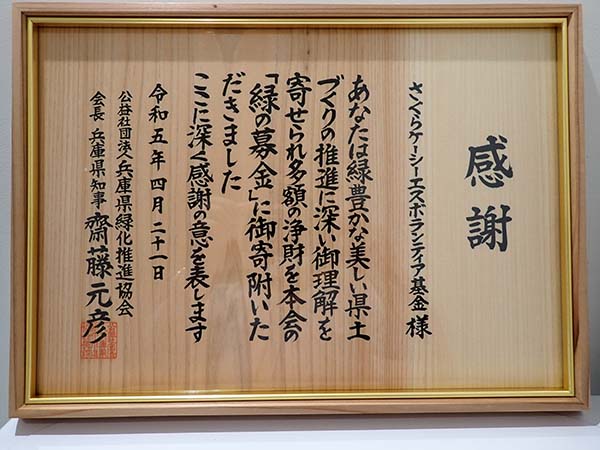 感謝
さくらケーシーエスボランティア基金 様
あなたは緑豊かな美しい県土
づくりの推進に深い御理解を
寄せられ多額の浄財を本会の
「緑の募金」に御寄附いた
だきました
ここに深く感謝の意を表します
令和五年四月二十一日
公益社団法人兵庫県緑化推進協会
会長 兵庫県知事 齋藤元彦